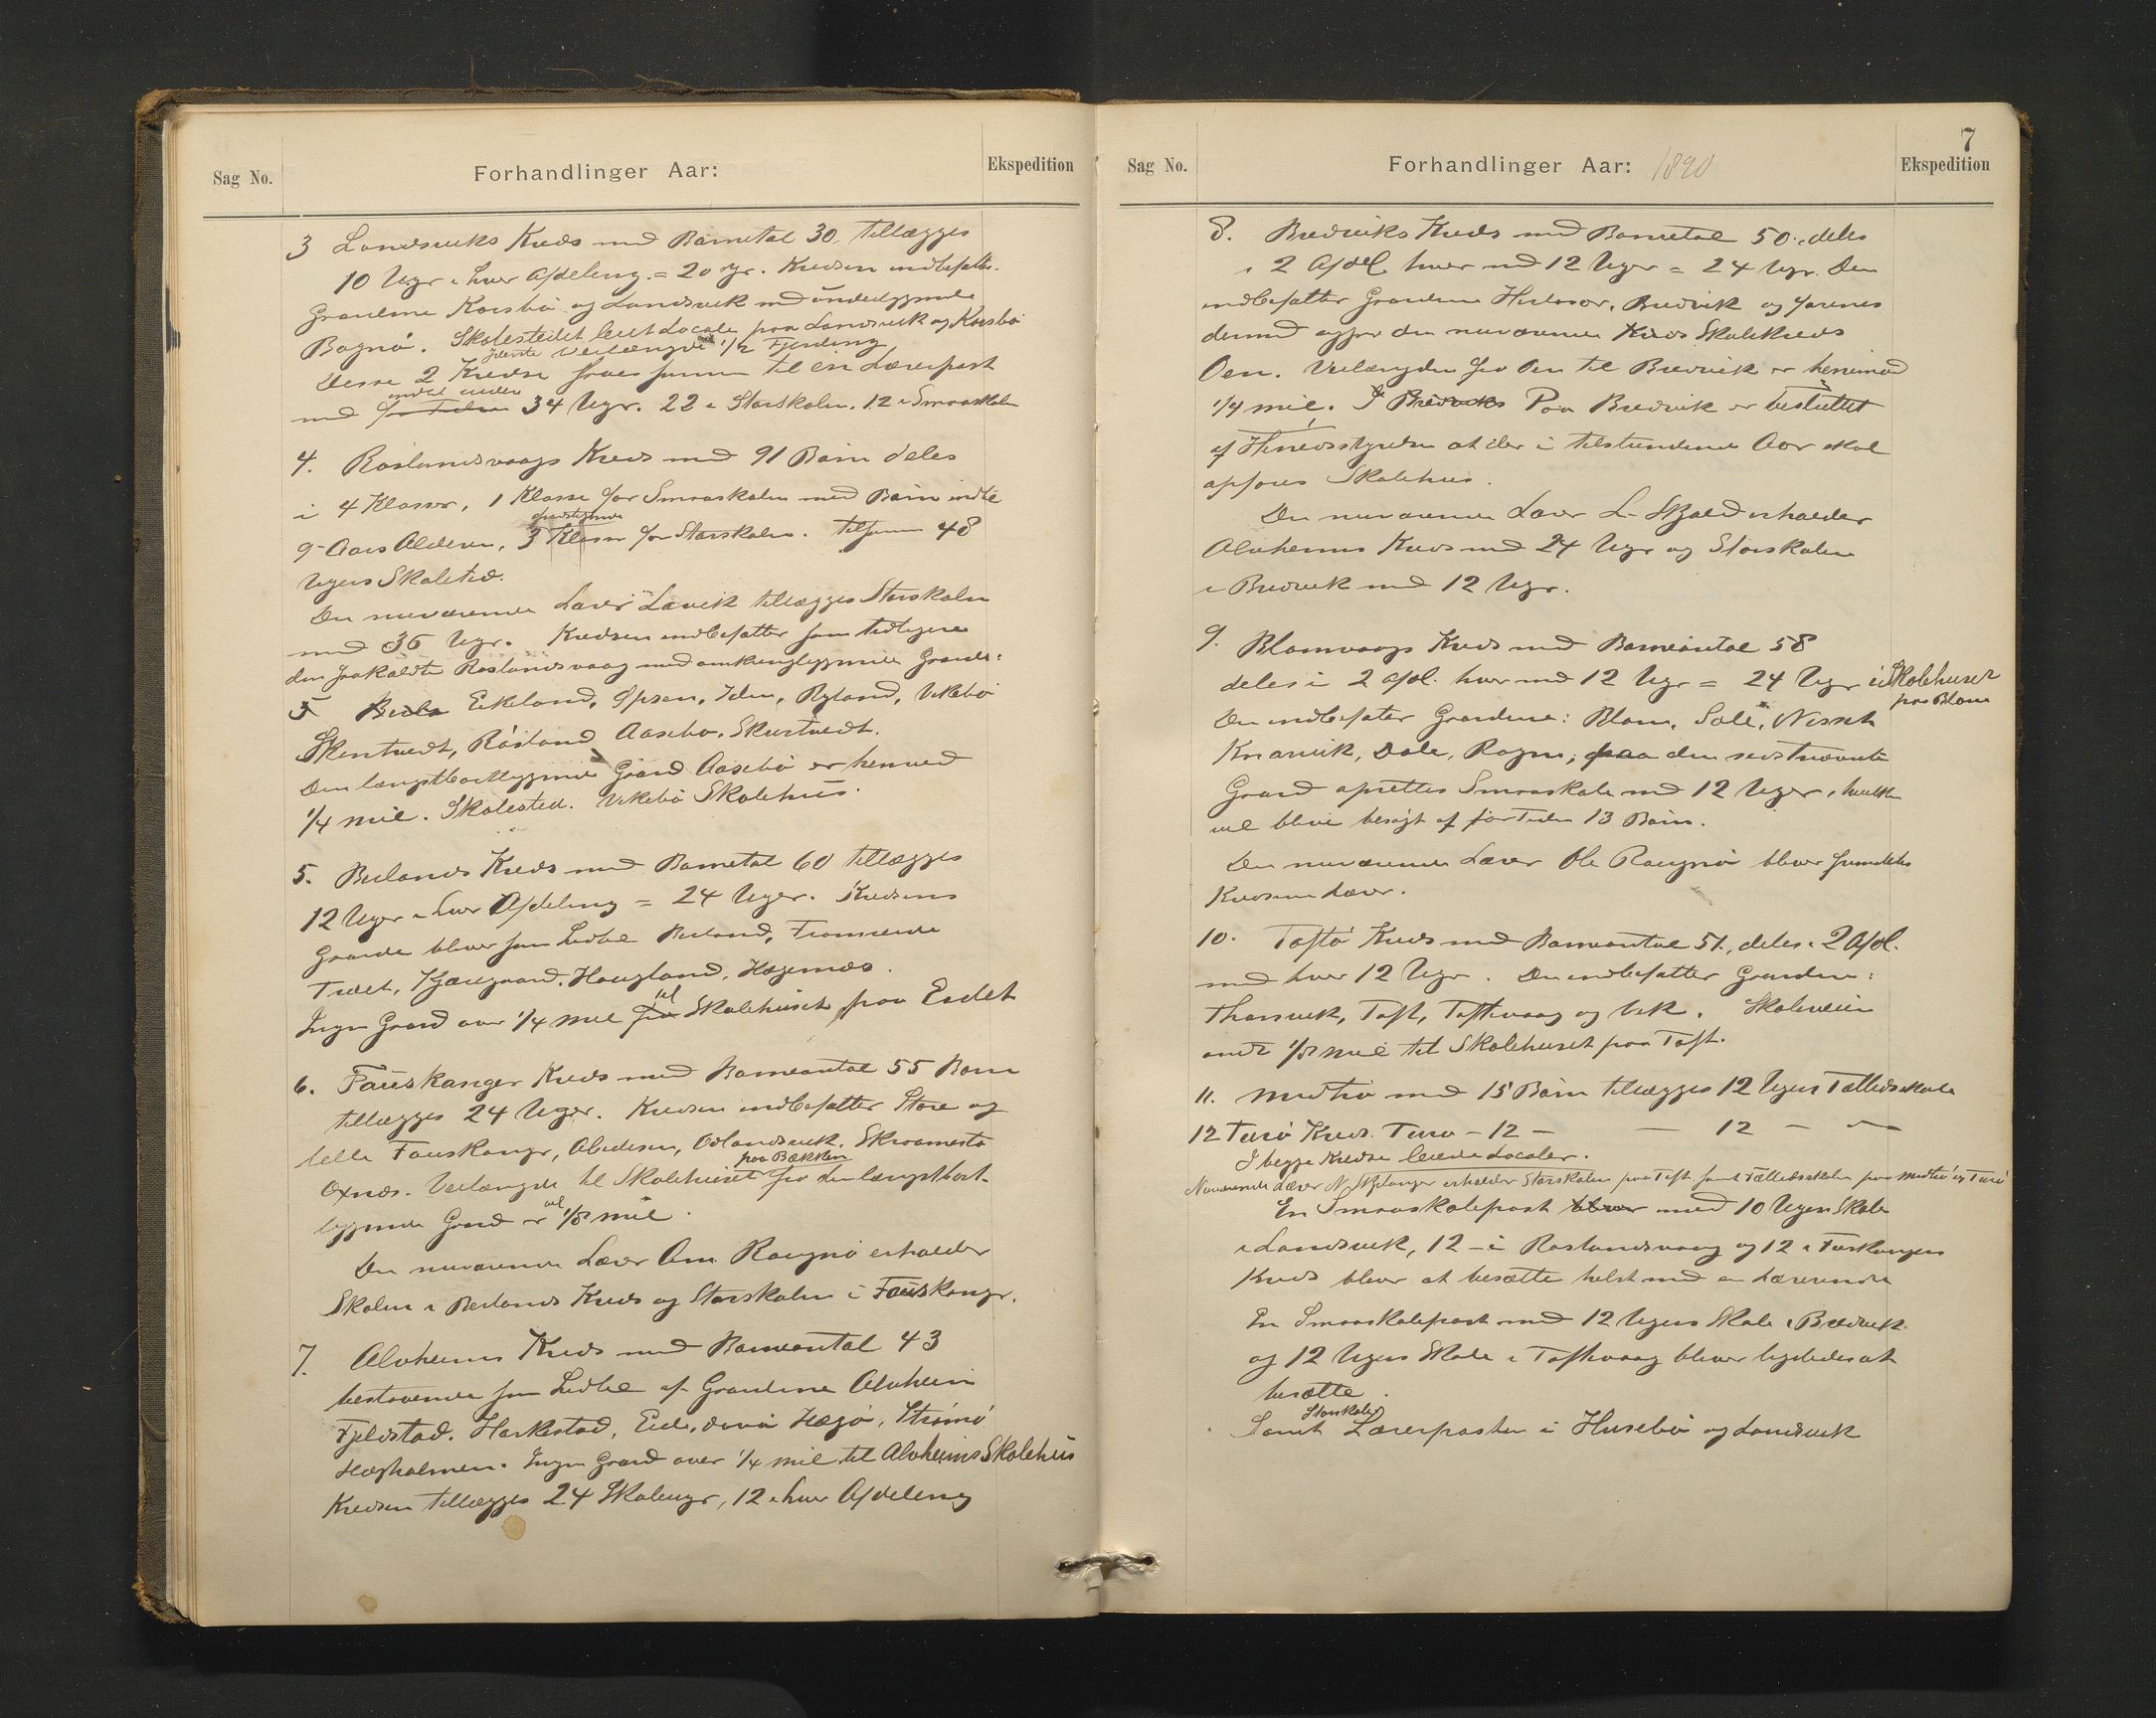 Sag No.
Forhandlinger Aar:
Ekspedition
3 Landsviks Kreds med Barnetal 30. tillægges
10 Ugr i hver Afdeling = 20 Ugr. Kredsen indbefatter
Gaardene Korsbø og Landsvik med underliggende
Bognø. Skolestedet leiet Locale paa Landsvik og Korsbø
største Veilængde 1/2 Fjerding
Disse 2 Kredse slaaes sammen til en Lærerpost
med for Tiden 34 Ugr. 22 i Storskolen. 12 i Smaaskolen
4. Røslandsvaags Kreds med 91 Børn deles
i 4 Klasser, 1 Klasse for Smaaskolen med Børn indtil
9 Aars Alderen, 3 Klasser for Storskolen. tilsam 48
Ugers Skoletid.
Den nuværende Lærer Lavik tillægges Storskolen
med 36 Ugr. Kredsen indbefatter som tidligere
den saakaldte Røslandsvaag med omkringliggende Gaarde:
5 Eikeland, Ypsen, Iden, Ryland, Vikebø
Skintvedt, Røsland Aasebø. Skurtvedt.
Den længstbortliggende Gaard Aasebø er henved
1/4 Mil. Skolested. Vikebø Skolehus.
5. Beilands Kreds med Barnetal 60 tillægges
12 Uger i hver Afdeling = 24 Uger. Kredsens
Gaarde bliver som hidtil Beiland, Fromreide
Træet, Kjærgaard, Hougland, Hagenæs.
Ingen Gaard over 1/4 Mil til Skolehuset paa Eidet
6. Fauskanger Kreds med Barneantal 55 Børn
tillægges 24 Uger. Kredsen indbefatter Store og
lille Fauskangr, Abedisen, Odlandsvik. Skraamestø
Oxnæs. Veilængde til Skolehuset paa Bækken fra den længstbort-
liggende Gaard er vel 1/8 Mil.
Den nuværende Lærer Om. Raugnø erholder
Skolen i Beilands Kreds og Storskolen i Fauskangr.
7. Alvheims Kreds med Barneantal 43
bestaaende som hidtil af Gaardene Alvheim
Fjeldstad. Harkestad, Eide, Hægø, Strømø
Hægholmen. Ingen Gaard over 1/4 Mil til Alvheims Skolehus
Kredsen tillægges 24 Skoleugr, 12 i hver Afdeling
7
Sag No.
Forhandlinger Aar: 1890
Ekspedition
8. Bredviks Kreds med Barnetal 50. deles
i 2 Afdel. hver med 12 Uger = 24 Ugr. Den
indbefatter Gaardene Herlesør, Bredvik og
dermed den nuværende Kreds Skolekreds
Oen. Veilængden fra Oen til Bredvik er henimod
1/4 Mil. I Bredviks Paa Bredvik er besluttet
af Herredsstyrelsen at der i tilstundende Aar skal
opføres Skolehus.
Den nuværende Lærer L. Skjold erholder
Alvheims Kreds med 24 Ugr og Storskolen
i Bredvik med 12 Ugr.
9. Blomvaags Kreds med Barneantal 58
deles i 2 Afd. hver med 12 Ugr = 24 Ugr i Skolehuset
paa Blom
Den indbefatter Gaardene: Blom, Sole, Nesset
Knarvik, Dale, Rogn; paa den sidstnævnte
Gaard oprettes Smaaskole med 12 Uger, hvilken
vil blive besøgt af for Tiden 13 Børn.
Den nuværende Lærer Ole Raugnø bliver fremdeles
Kredsens Lærer.
10. Toftø Kreds med Barneantal 51, deles i 2 Afd.
med hver 12 Ugr. Den indbefatter Gaardene:
Thorsvik, Toft, Toftevaag og Vik. Skoleveien
omtr 1/8 Mil til Skolehuset paa Toft.
11. Midtø med 15 Børn tillægges 12 Ugers Fælledsskole
12 Turø Kreds. Turø – 12 – – 12 – –
I begge Kredse leiede Locale.
Nuværende Lærer N. Skjelanger erholder Storskolen paa Toft samt Fælledsskolen paa Midtø og Turø
En Smaaskolepost bliver med 10 Ugers Skole
i Landsvik, 12 – i Røslandsvaag og 12 i Fauskangers
Kreds bliver at besætte helst med en Lærerinde
En Smaaskolepost med 12 Ugers Skole i Bredvik
og 12 Ugers Skole i Toftevaag bliver ligeledes at
besætte.
Samt Storskole Lærerposten i Husebø og Landsvik